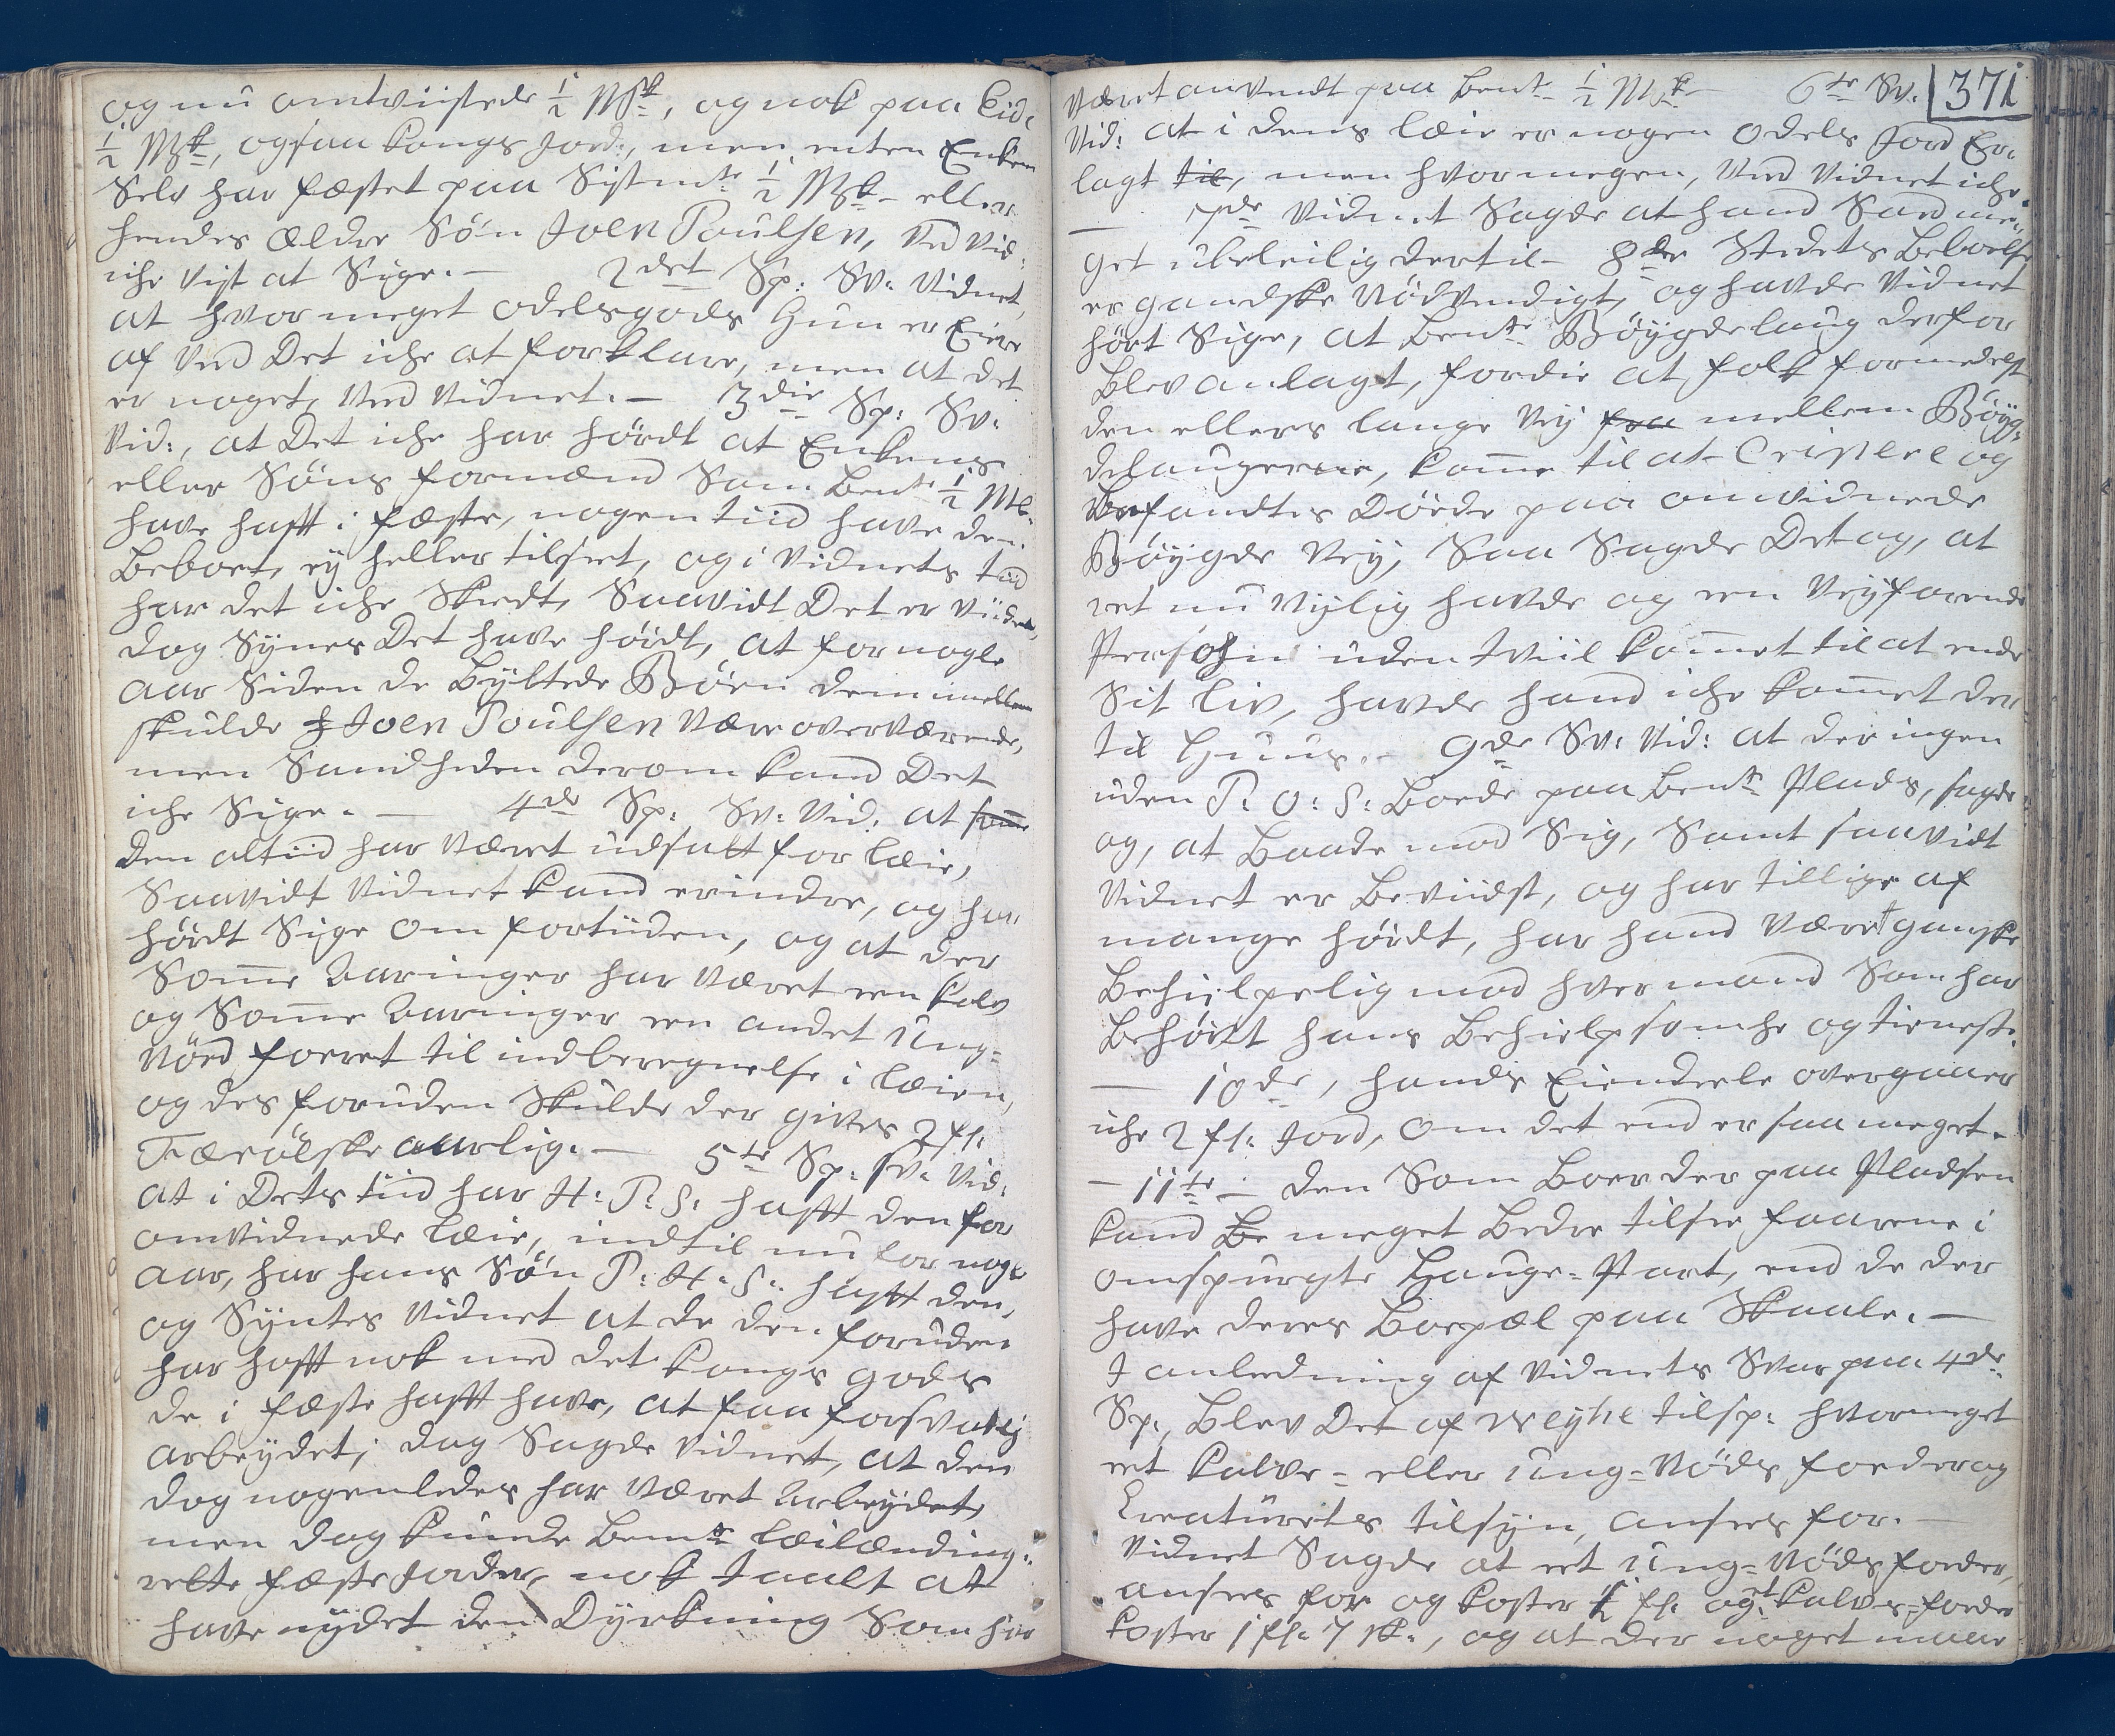 og nu omtviistede 1/2 Mk, og nok paa Eid.
1/2 Mk, ogsaa Kongs Jord, men enten Enken
Selv har fæstet paa Sistnte 1/2 Mk eller
hendes Ældre Søn Joen Poulsen, Ved Vid:
iche vist at Sige. — 2det Sp: Sv: Vidnet,
at hvor meget odelsgods Hun er Eiere
af Ved Det iche at forklare, men at det
er noget, Ved Vidnet. — 3die Sp: Sv:
Vid:, at Det iche har hørdt at Enkens
eller Søns formænd Som bemte 1/2 Mk.
have hafft i fæste, nogen tiid have den
Beboet, ey heller tilseet, og i Vidnets tiid
har det iche Skeedt, Saavidt Det er Viidende,
dog Synes Det have hørdt, at for nogle
Aar Siden de Byltede Børn dem imellem
skulde Joen Poulsen være overværende,
men Sandheden derom kand Det
iche Sige. — 4de Sp: Sv: Vid: at
den altiid har Været udsatt for læie,
Saavidt Vidnet kand erindre, og har
hørdt Sige om fortiiden, og at der
Somme Aaringer har Været een Kalv
og Somme Aaringer een andet Ung-
Nød foeret til indberegnelse i læien,
og desforuden Skulde der gives 2 fl:
Færøiske aarlig. — 5te Sp: Sv: Vid:
at i Dets tiid har H: P: S: hafft den for
omvidnede læie, indtil nu for nogle
Aar, har hans Søn P: H: S: hafft den,
og Syntes Vidnet at de den foruden
har hafft nok med det Kongs gods
de i fæste hafft have, at faa forsvarlig
arbeydet; dog Sagde Vidnet, at den
dog nogenledes har Været Arbeydet,
men dog kunde bemte leilænding:
fæste Jorder, nok taalt at
have nydet den Dyrkning Som har
371
Været anvendt paa bemte 1/2 Mk — 6te Sv:
Vid: at i dens læie er nogen odels Jord Er-
lagt til, men hvormegen, Ved Vidnet iche.
— 7de Vidnet Sagde at hand Sad me-
get ubeleilig dertil — 8de Stedets Beboelse
er gandske Nødvendigt, og havde Vidnet
hørt Sige, at bemte Bøygdelaug derfor
Blev anlagt, fordie at folk formedelst
den ellers lange Vey fra mellem Bøyg-
delaugerne, komme til at Crepere og
Befandtes Døede paa omvidnede
Bøygde Vey, Saa Sagde Det og, at
eet nu Nylig havde og een Veyfarende
Persohn uden tviil kommet til at ende
Sit liv, havde hand iche kommet der
til Huus. — 9de Sv: Vid: at der ingen
uden P: O: S: Boede paa bemte Plads, sagde
og, at Baade mod Sig, Samt saavidt
Vidnet er Beviidst, og har tillige af
mange hørdt, har hand Været ganske
Behielpelig mod hver mand Som har
Behøvt hans Behielpsomhe og tieneste.
— 10de, hands Eiendeele overgaaer
iche 2 fl: Jord, om det end er saa meget.
— 11te — den Som Boer der paa Pladsen
kand Be meget Bedre tilsee faarene i
omspurgte Hauge-Part, end de der
have deres Boepæl paa Skaale. —
I anledning af Vidnets Svar paa 4de
Sp:, Blev Det af Weyhe tilsp: hvormeget
eet Kalve- eller Ung-Nøds foeder og
Creaturets tilsyn, ansees for. —
Vidnet Sagde at eet Ung-Nøds foeder,
ansees for og koster 1/2 fl: og et Kalvs-foeder
koster 1 fl: 7 sk:, og at der noget maae